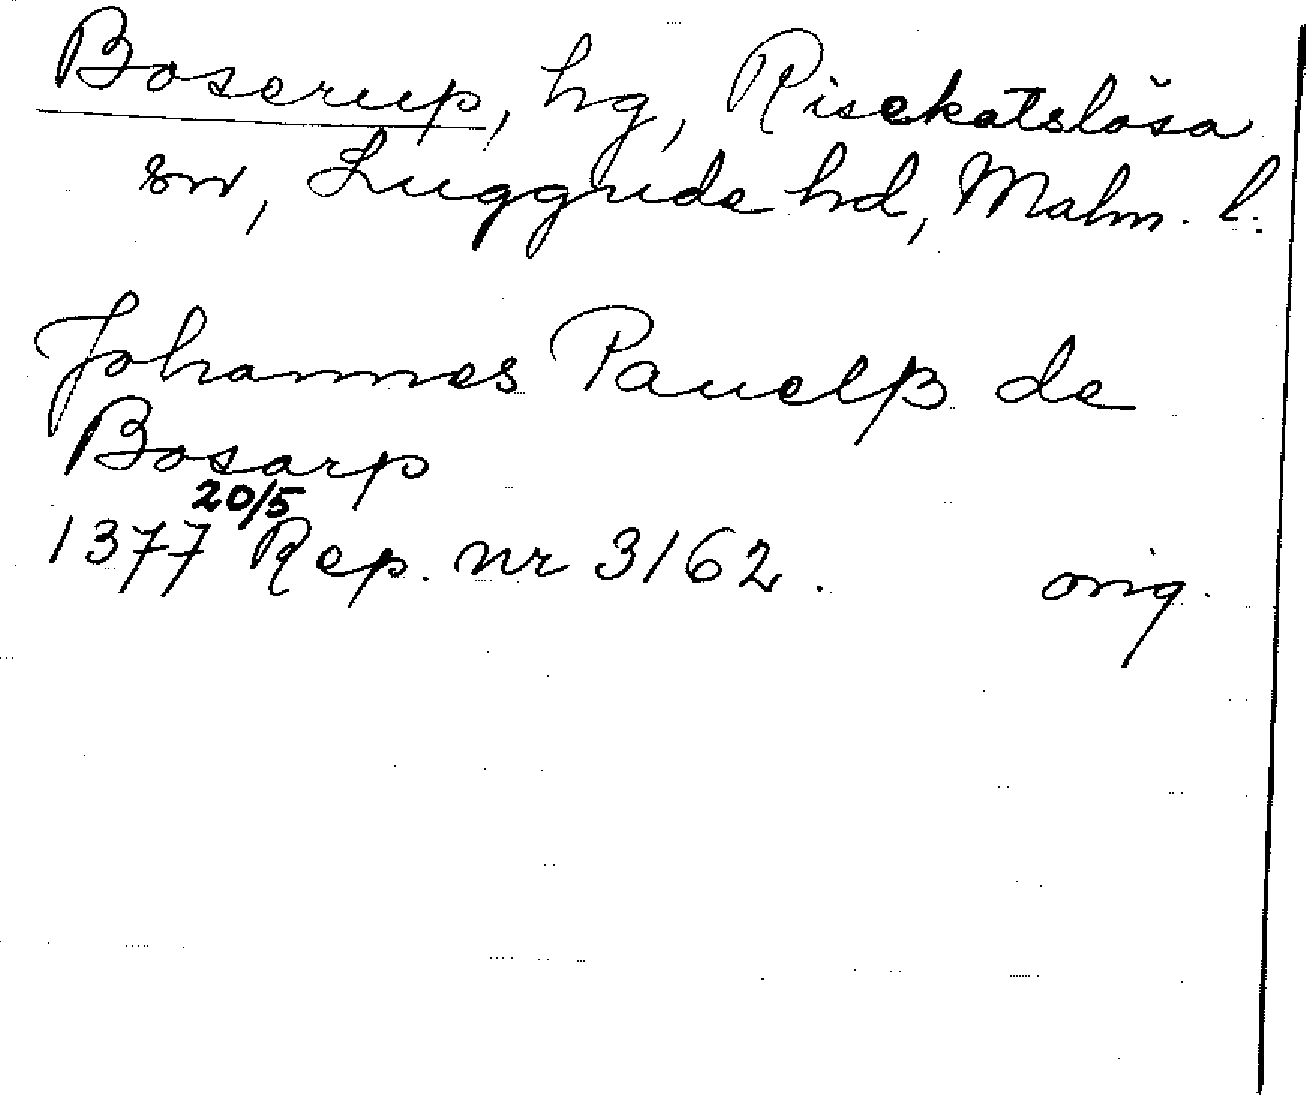 Boserup, hg, Risekatslösa
sn, Luggude hd, Malm. l.
Johannes Pauelß de
Bosarp
20/5
1377 Rep. nr 3162. orig.